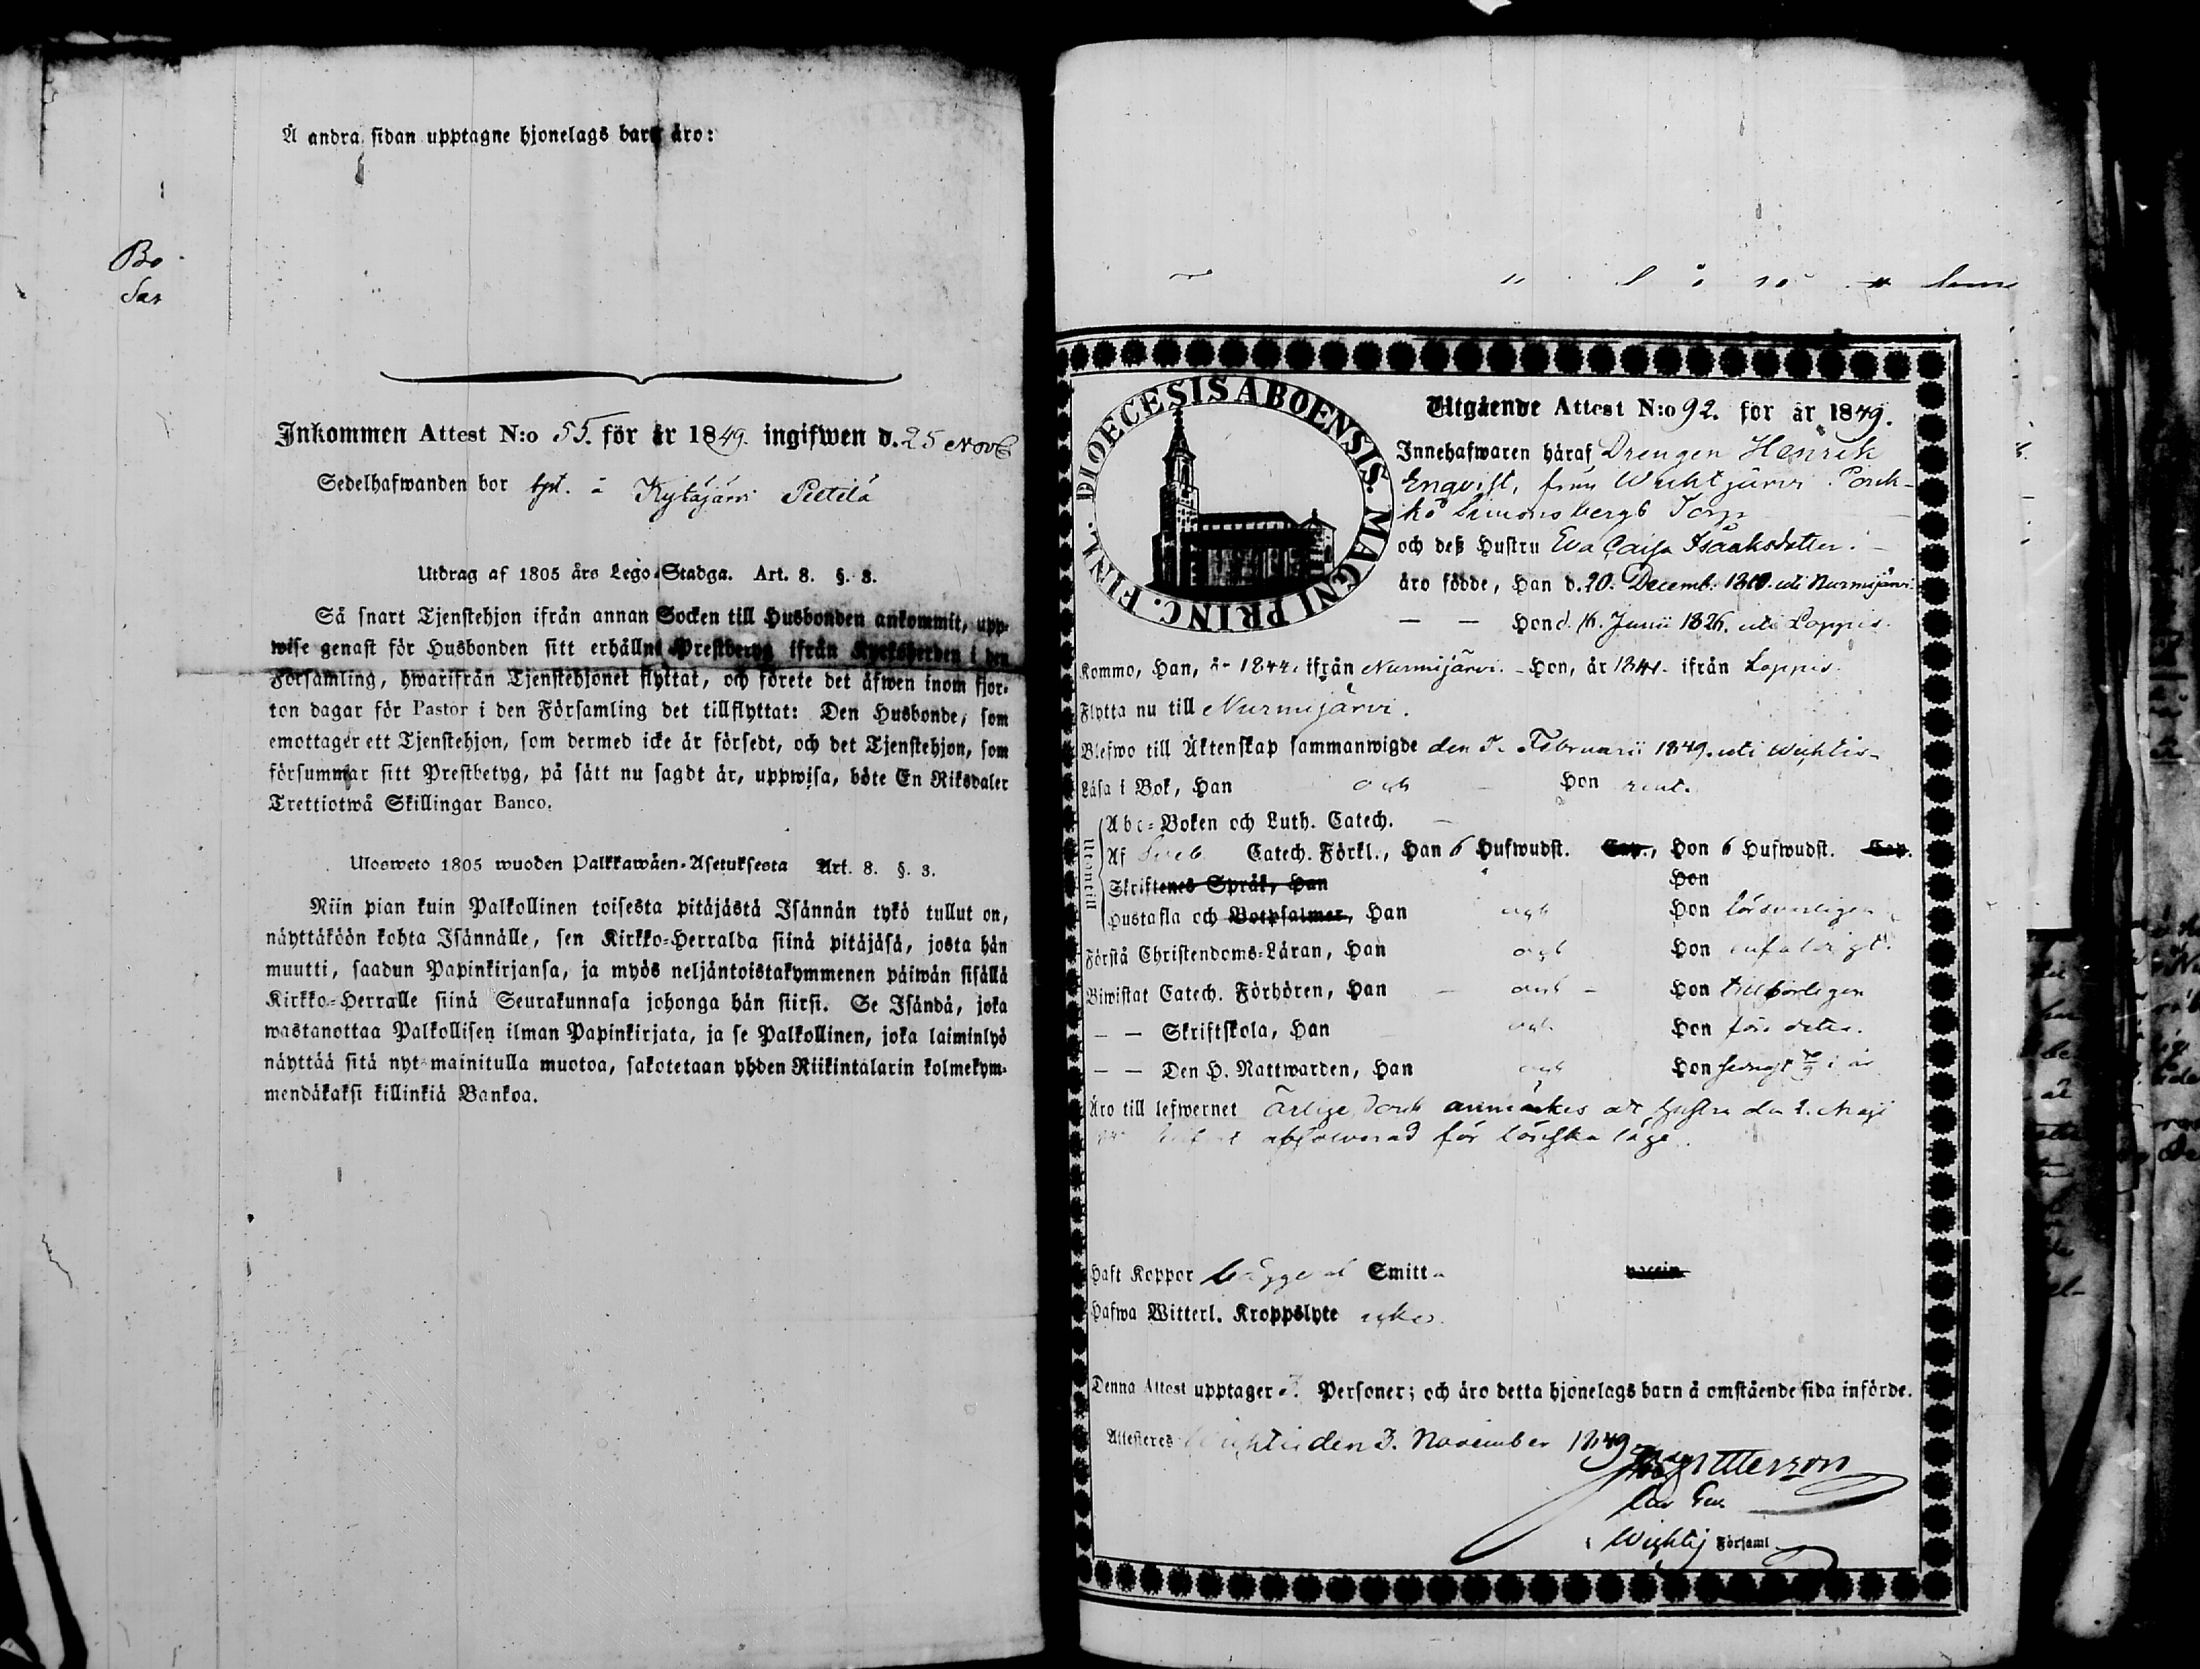 Å andra sidan upptagne hjonelags barn äro:
Bo
Sar
Inkommen Attest N:o 55. för år 1849. ingifwen d. 25 Novb
Sedelhafwanden bor å Kytäjärvi Pietilä
Utdrag af 1805 års Lego-Stadga. Art. 8. §. 8.
Så snart Tjenstehjon ifrån annan Socken till Husbonden ankommit, upp-
wise genast för Husbonden sitt erhållne Prestbetyg ifrån Kyrkoherden i den
Församling, hwarifrån Tjenstehjonet flyttat, och förete det äfwen inom fjor-
ton dagar för Pastor i den Församling det tillflyttat: Den Husbonde, som
emottager ett Tjenstehjon, som dermed icke är försedt, och det Tjenstehjon, som
försummar sitt Prestbetyg, på sätt nu sagdt är, uppwisa, böte En Riksdaler
Trettiotwå Skillingar Banco.
Ulosweto 1805 wuoden Palkkawäen-Asetuksesta Art. 8. §. 8.
Niin pian kuin Palkollinen toisesta pitäjästä Isännän tykö tullut on,
näyttäköön kohta Isännälle, sen Kirkko-Herralda siinä pitäjäsä, josta hän
muutti, saadun Papinkirjansa, ja myös neljäntoistakymmenen päiwän sisällä
Kirkko-Herralle siinä Seurakunnasa johonga hän siirsi. Se Isändä, joka
wastanottaa Palkollisen ilman Papinkirjata, ja se Palkollinen, joka laiminlyö
näyttää sitä nyt mainitulla muotoa, sakotetaan yhden Riikintalarin kolmekym-
mendäkaksi killinkiä Bankoa.
DIOECESIS ABOENSIS. MAGNI PRINC. FINL.
Utgående Attest N:o 92. för år 1849.
Innehafwaren häraf Drengen Henrik
Enqvist, från Wichtjärvi
Simonsbergs Torp
och deß Hustru Eva Caisa Isaaksdotter.
äro födde, Han d. 20. Decemb. 1819. uti Nurmijärvi
— — Hon d. 16. Junii 1826. uti Loppis.
Kommo, Han, år 1844. ifrån Nurmijärvi. - Hon, år 1841. ifrån Loppis.
Flytta nu till Nurmijärvi.
Blefwo till Äktenskap sammanwigde den 5. Februarii 1849. uti Wichtis
Läsa i Bok, Han och Hon rent.
Utantill
Abc-Boken och Luth. Catech. —
Af Catech. Förkl., Han 6 Hufwudst. Cap., Hon 6 Hufwudst. Cap.
Skriftenes Språk, Han Hon
Hustafla och Botpsalmer, Han och Hon försvarligen
Första Christendoms-Läran, Han och Hon enfaldigt.
Biwistat Catech. Förhören, Han — och — Hon tillbörligen
— — Skriftskola, Han och Hon före detta.
— — Den H. Nattwarden, Han och Hon i år
Äro till lefwernet ärlige, dock anmärkes att hustru den 2. Maji
absolverad för lönskaläge.
Haft Koppor bägge Smitta waccin
Hafwa Witterl. Kroppslyte icke.
Denna Attest upptager Personer; och äro detta hjonelags barn å omstående sida införde.
Attesteras Wichtis den 3. November 1849.
i Wichtis Församl